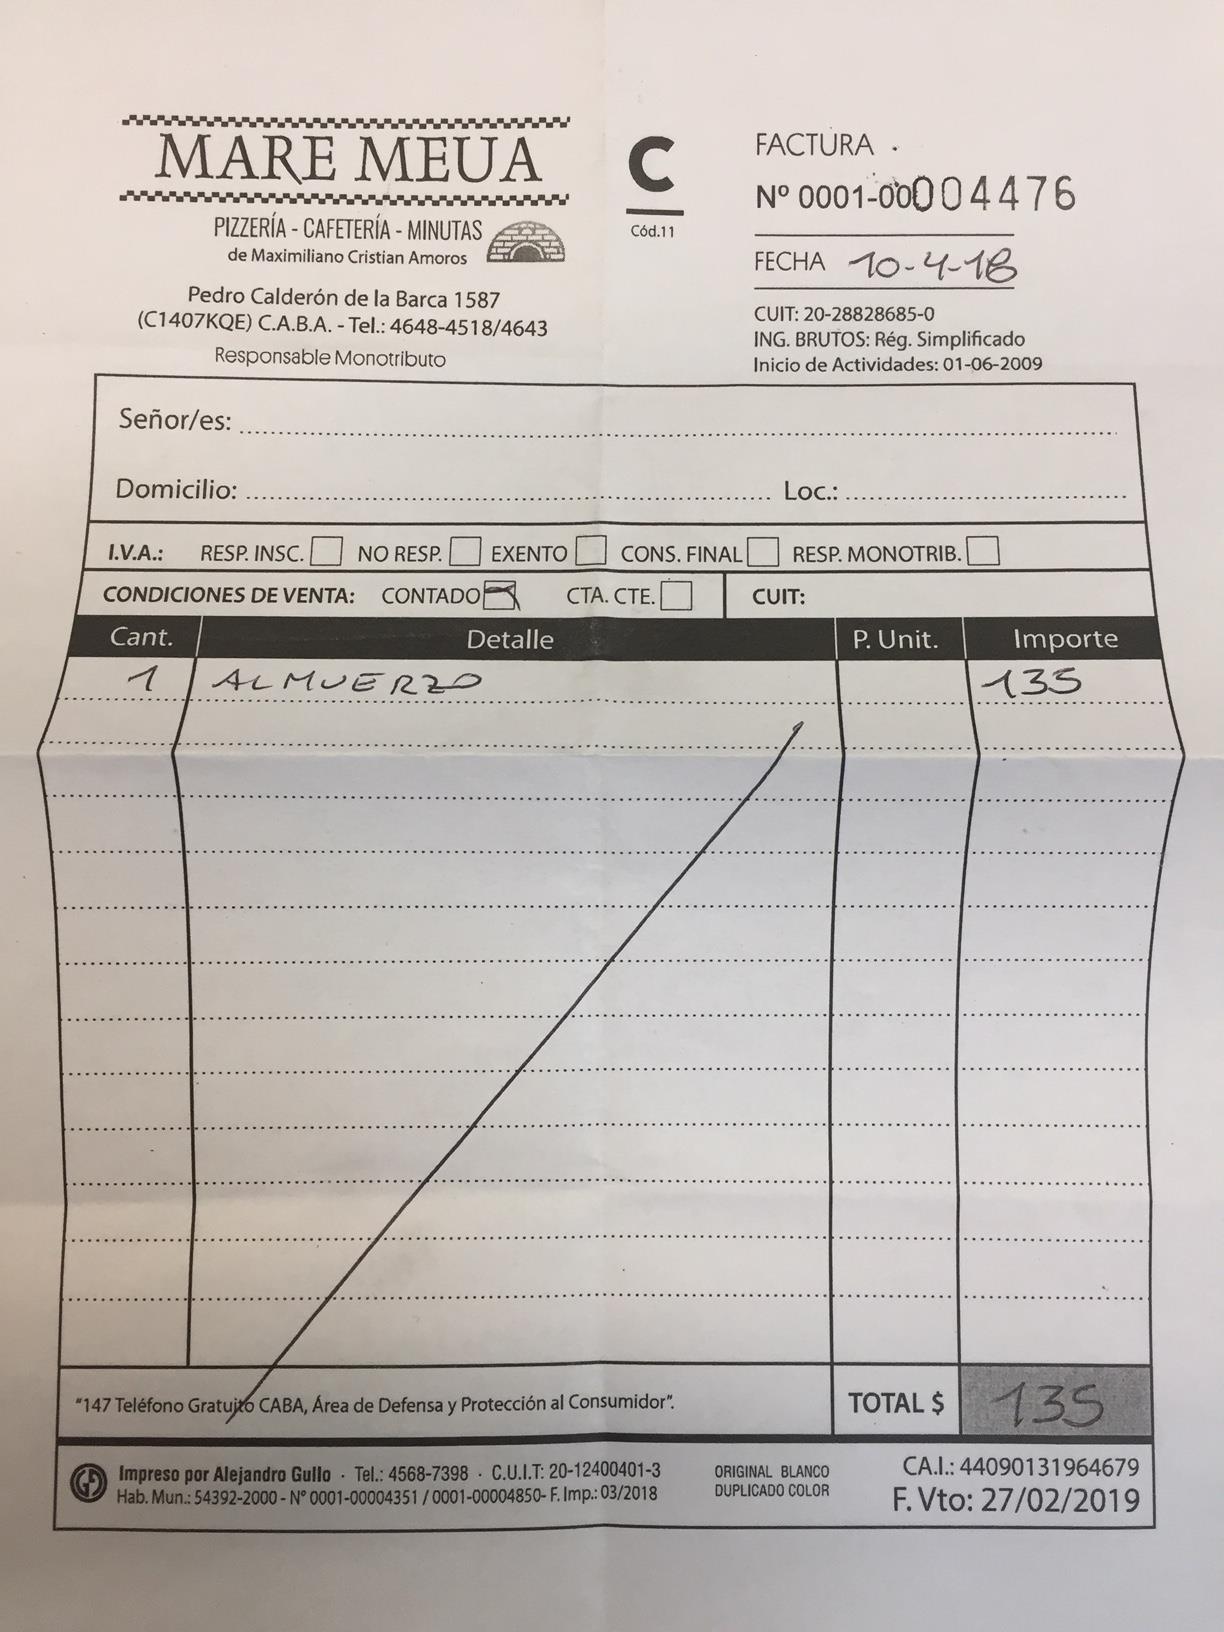 MARE MEUA
PIZZERÍA - CAFETERÍA - MINUTAS
de Maximiliano Cristian Amoros
Pedro Calderón de la Barca 1587
(C1407KQE) C.A.B.A. - Tel.: 4648-4518/4643
Responsable Monotributo
C
Cód.11
FACTURA
Nº 0001-00004476
FECHA 10-4-18
CUIT: 20-28828685-0
ING. BRUTOS: Rég. Simplificado
Inicio de Actividades: 01-06-2009
Señor/es:
Domicilio: Loc.:
I.V.A.: RESP. INSC. NO RESP. EXENTO CONS. FINAL RESP. MONOTRIB.
CONDICIONES DE VENTA: CONTADO CTA. CTE. CUIT:
Cant. Detalle P. Unit. Importe
1 ALMUERZO 135
"147 Teléfono Gratuito CABA, Área de Defensa y Protección al Consumidor". TOTAL $ 135
Impreso por Alejandro Gullo · Tel.: 4568-7398 · C.U.I.T: 20-12400401-3
Hab. Mun.: 54392-2000 - Nº 0001-00004351 / 0001-00004850- F. Imp.: 03/2018
ORIGINAL BLANCO
DUPLICADO COLOR
CA.I.: 44090131964679
F. Vto: 27/02/2019